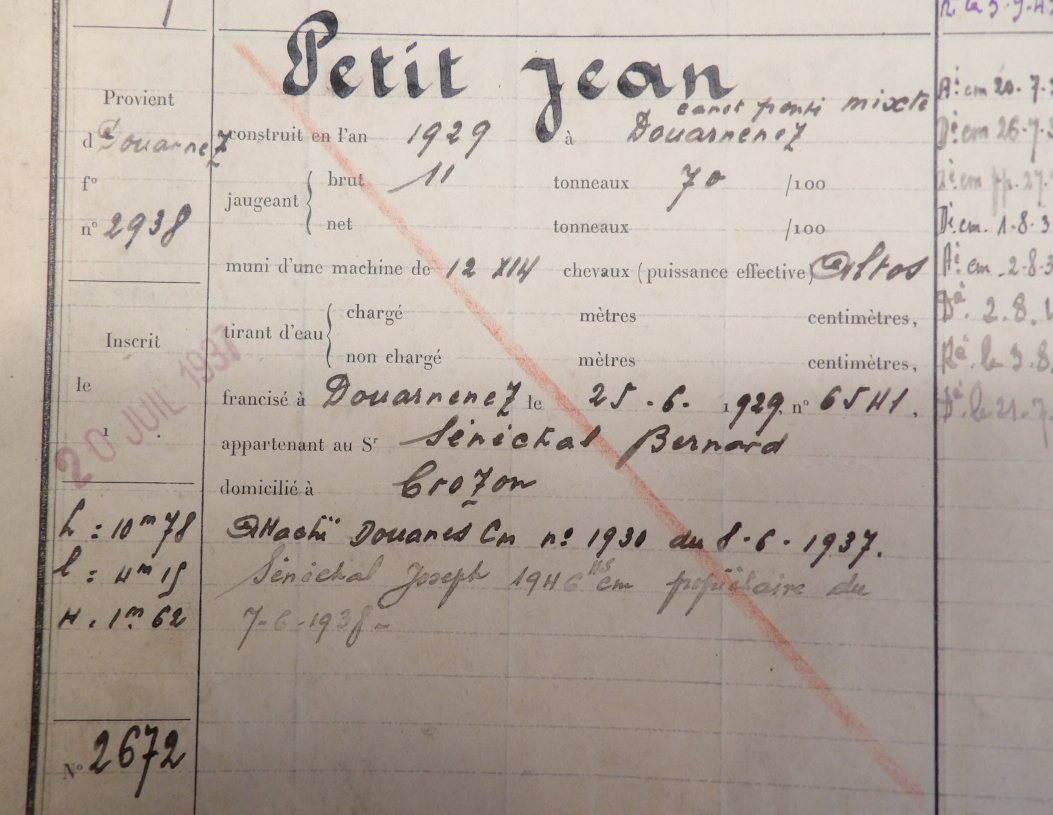 Petit Jean
canot ponté mixte
Provient
d Douarnenez
f°
n° 2938
construit en l'an 1929 à Douarnenez
jaugeant
brut 11 tonneaux 70 /100
net tonneaux /100
muni d'une machine de 12 X14 chevaux (puissance effective) Altos
tirant d'eau
chargé mètres centimètres,
non chargé mètres centimètres,
Inscrit
le
1
20 JUIL 1937
francisé à Douarnenez le 25-6- 1929. n° 6541.
appartenant au Sr Sénéchal Bernard
domicilié à Crozon
Attaché Douanes Cm n° 1930 du 8-6-1937.
Sénéchal Joseph 1946 Cm propiétaire du
7-6-1938-
L : 10m78
l : 4m15
H. 1m62
N° 2672
le 3.9.4
Aé cm 20.7.3
Dé cm 26.7.3
Aé cm pp. 27.
Dé cm. 1.8.3
Aé cm. 2.8.3
Dé. 2.8.
Ré. le 3.8.
Dé. le 21.7